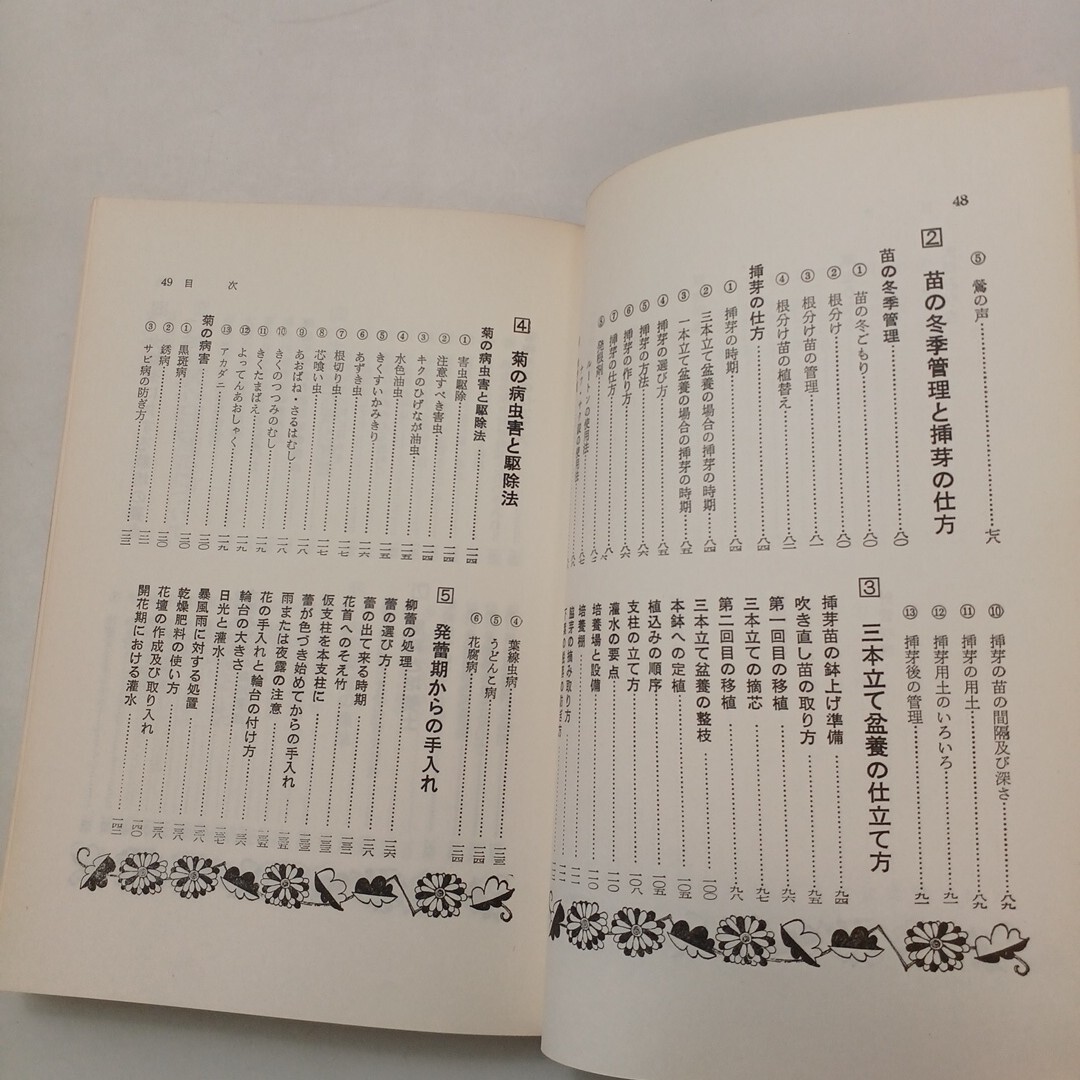 48
⑤ 鶯の声……七八
2 苗の冬季管理と挿芽の仕方
苗の冬季管理……八〇
① 苗の冬ごもり……八〇
② 根分け……八〇
③ 根分け苗の管理……八一
④ 根分け苗の植替え……八二
挿芽の仕方……八四
① 挿芽の時期……八四
② 三本立て盆養の場合の挿芽の時期……八四
③ 一本立て盆養の場合の挿芽の時期……八五
④ 挿芽の選び方……八五
⑤ 挿芽の方法……八六
⑥ 挿芽の作り方……八六
⑦ 挿芽の仕方……八六
⑧ 発根剤……八七
⑩ 挿芽の苗の間隔及び深さ……八九
⑪ 挿芽の用土……八九
⑫ 挿芽用土のいろいろ……九一
⑬ 挿芽後の管理……九一
3 三本立て盆養の仕立て方
挿芽苗の鉢上げ準備……九四
吹き直し苗の取り方……九五
第一回目の移植……九六
三本立ての摘芯……九七
第二回目の移植……九九
三本立て盆養の整枝……一〇〇
本鉢への定植……一〇五
植込みの順序……一〇五
支柱の立て方……一〇八
灌水の要点……一一〇
培養場と設備……一一〇
培養棚
49 目 次
4 菊の病虫害と駆除法
菊の病虫害と駆除法……一一四
① 害虫駆除……一一四
② 注意すべき害虫……一一四
③ キクのひげなが油虫……一一四
④ 水色油虫……一一五
⑤ きくすいかみきり……一一五
⑥ あずき虫……一一六
⑦ 根切り虫……一一七
⑧ 芯喰い虫……一一七
⑨ あおばね・さるはむし……一一八
⑩ きくのつつみのむし……一一八
⑪ きくたまばえ……一一九
⑫ よってんあおしゃく……一一九
⑬ アカダニ……一一九
菊の病害……一二〇
① 黒斑病……一二〇
② 銹病……一二〇
③ サビ病の防ぎ方……
④ 葉線虫病……
⑤ うどんこ病……
⑥ 花腐病……
5 発蕾期からの手入れ
柳蕾の処理……
蕾の選び方……
蕾の出て来る時期……
花首へのそえ竹……
仮支柱を本支柱に……
蕾が色づき始めてからの手入れ……
雨または夜露の注意……一三五
花の手入れと輪台の付け方……一三五
輪台の大きさ……一三六
日光と灌水……一三七
暴風雨に対する処置……一三八
乾燥肥料の使い方……一三八
花壇の作成及び取り入れ……一四〇
開花期における灌水……一四二